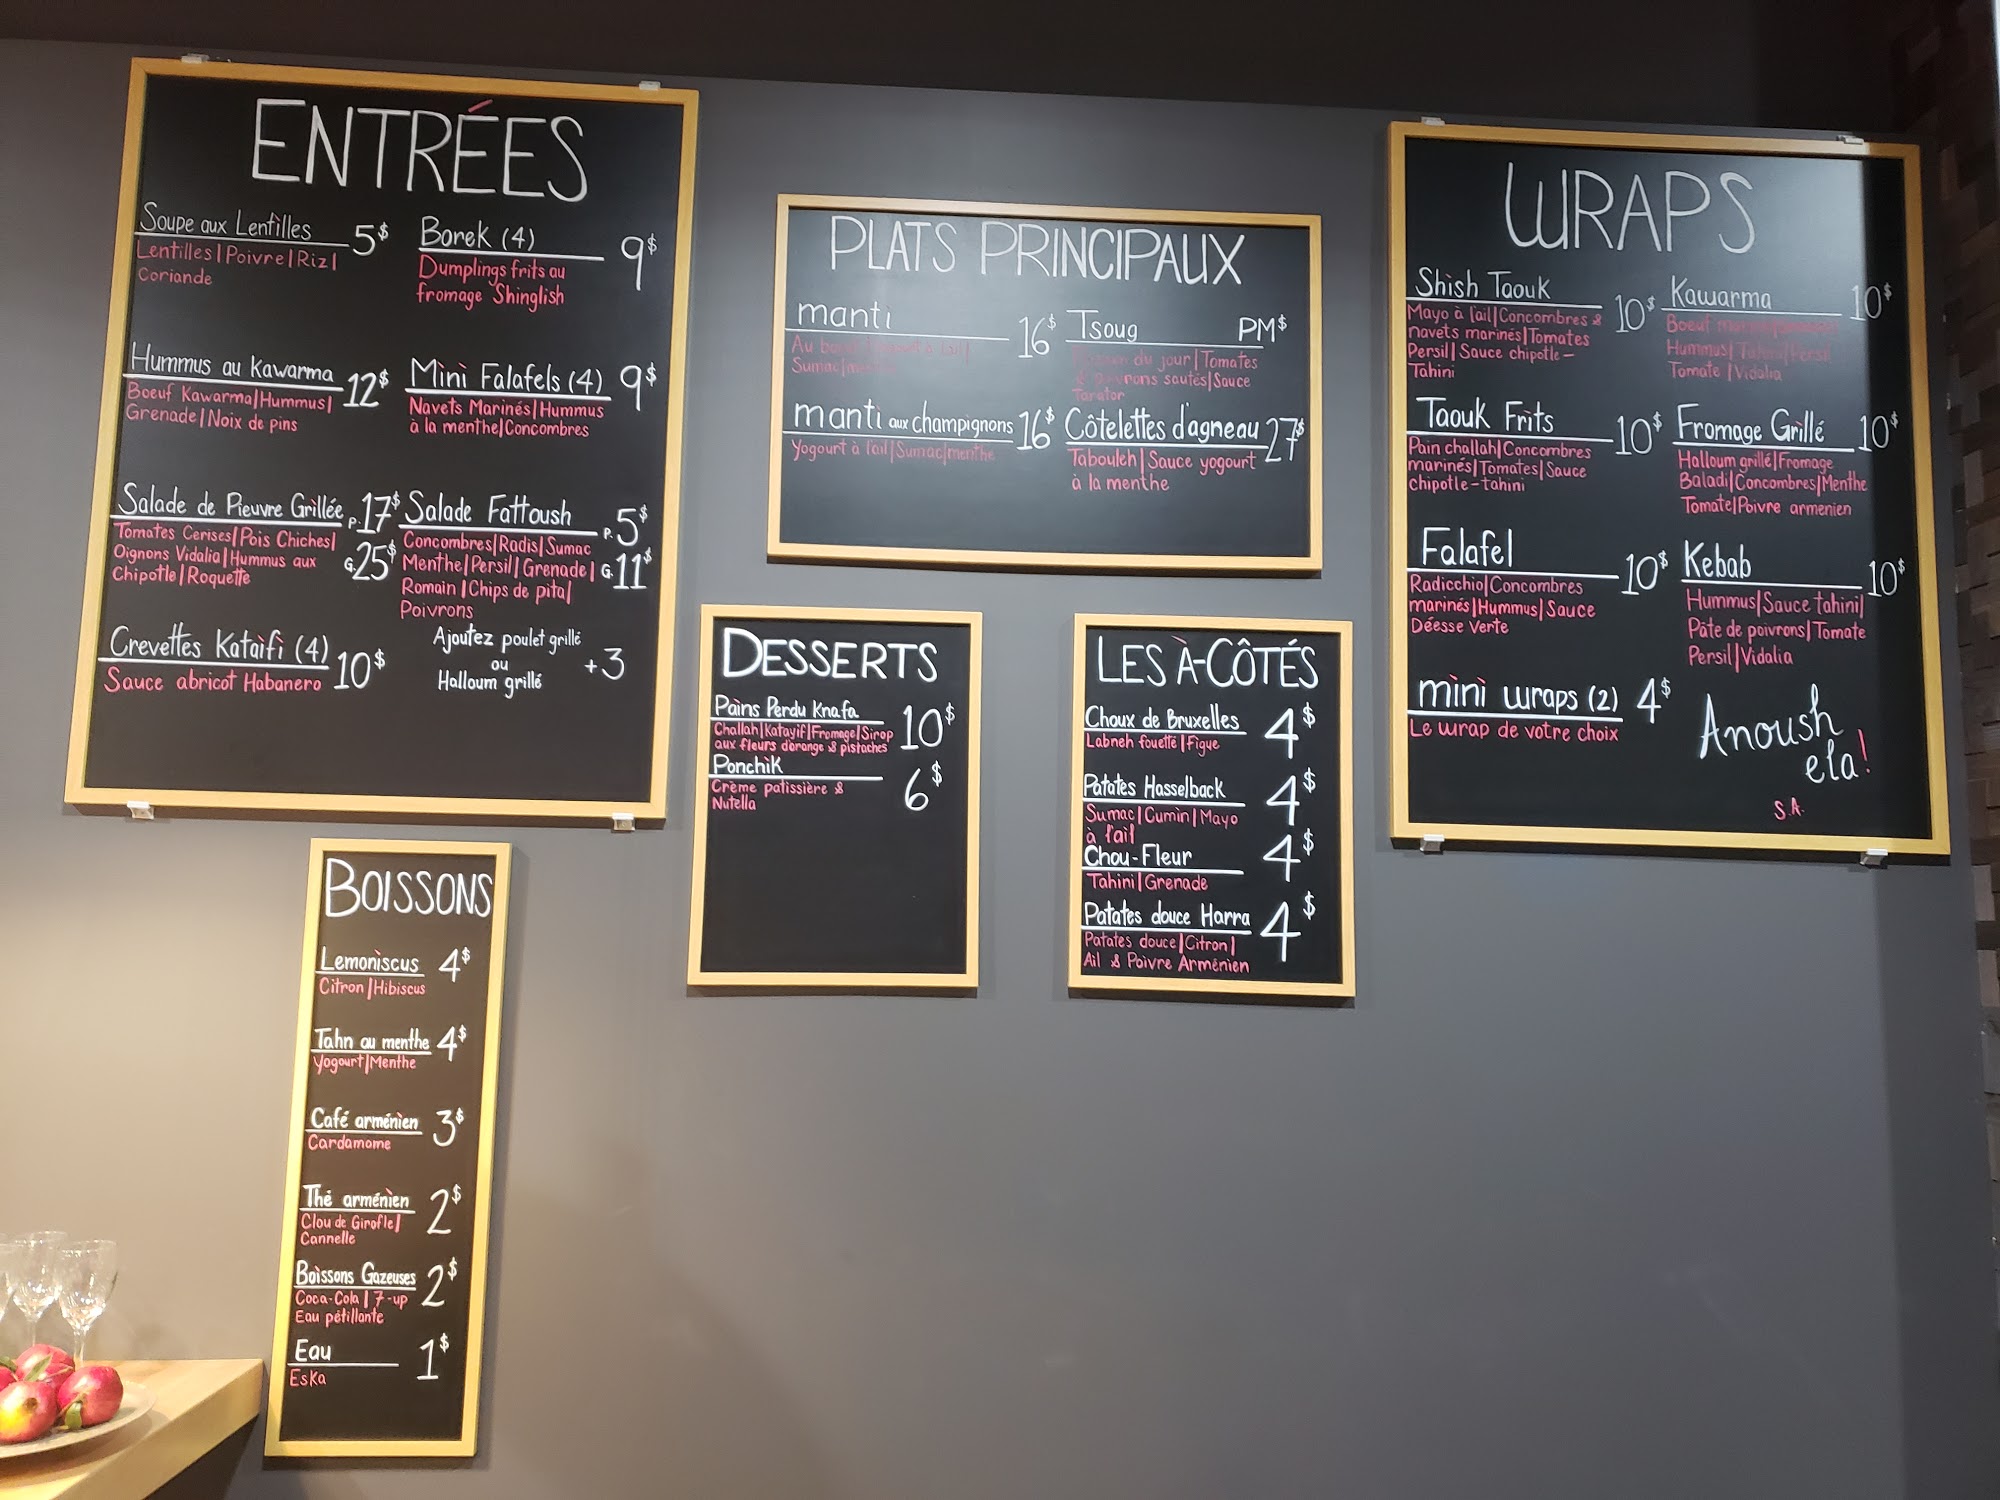 ENTRÉES
Soupe aux Lentilles 5$
Lentilles|Poivre|Riz|
Coriande
Borek (4) 9$
Dumplings frits au
fromage Shinglish
Hummus au Kawarma 12$
Boeuf Kawarma|Hummus|
Grenade|Noix de pins
Mini Falafels (4) 9$
Navets Marinés|Hummus
à la menthe|Concombres
Salade de Pieuvre Grillée P. 17$
Tomates Cerises|Pois Chiches|
Oignons Vidalia|Hummus aux G. 25$
Chipotle|Roquette
Salade Fattoush P. 5$
Concombres|Radis|Sumac
Menthe|Persil|Grenade| G. 11$
Romain|Chips de pita|
Poivrons
Crevettes Kataifi (4) 10$
Sauce abricot Habanero
Ajoutez poulet grillé
ou +3
Halloum grillé
PLATS PRINCIPAUX
manti 16$
Au
Sumac|menthe
Tsoug PM$
du jour|Tomates
& poivrons sautés|Sauce
Tarator
manti aux champignons 16$
Yogourt à l'ail|Sumac|menthe
Côtelettes d'agneau 27$
Tabouleh|Sauce yogourt
à la menthe
WRAPS
Shish Taouk 10$
Mayo à l'ail|Concombres &
navets marinés|Tomates
Persil|Sauce chipotle-
Tahini
Kawarma 10$
Boeuf
Hummus|Tahini|Persil
Tomate|Vidalia
Taouk Frits 10$
Pain challah|Concombres
marinés|Tomates|Sauce
chipotle-tahini
Fromage Grillé 10$
Halloum grillé|Fromage
Baladi|Concombres|Menthe
Tomate|Poivre armenien
Falafel 10$
Radicchio|Concombres
marinés|Hummus|Sauce
Déesse Verte
Kebab 10$
Hummus|Sauce tahini|
Pâte de poivrons|Tomate
Persil|Vidalia
mini wraps (2) 4$
Le wrap de votre choix
Anoush
ela!
S.A.
DESSERTS
Pains Perdu Knafa 10$
Challah|Katayif|Fromage|Sirop
aux fleurs d'orange & pistaches
Ponchik 6$
Crème patissière &
Nutella
LES À-CÔTÉS
Choux de Bruxelles 4$
Labneh fouetté|Figue
Patates Hasselback 4$
Sumac|Cumin|Mayo
à l'ail
Chou-Fleur 4$
Tahini|Grenade
Patates douce Harra 4$
Patates douce|Citron|
Ail & Poivre Arménien
BOISSONS
Lemoniscus 4$
Citron|Hibiscus
Tahn au menthe 4$
Yogourt|Menthe
Café arménien 3$
Cardamome
Thé arménien 2$
Clou de Girofle|
Cannelle
Boissons Gazeuses 2$
Coca-Cola|7-up
Eau pétillante
Eau 1$
Eska